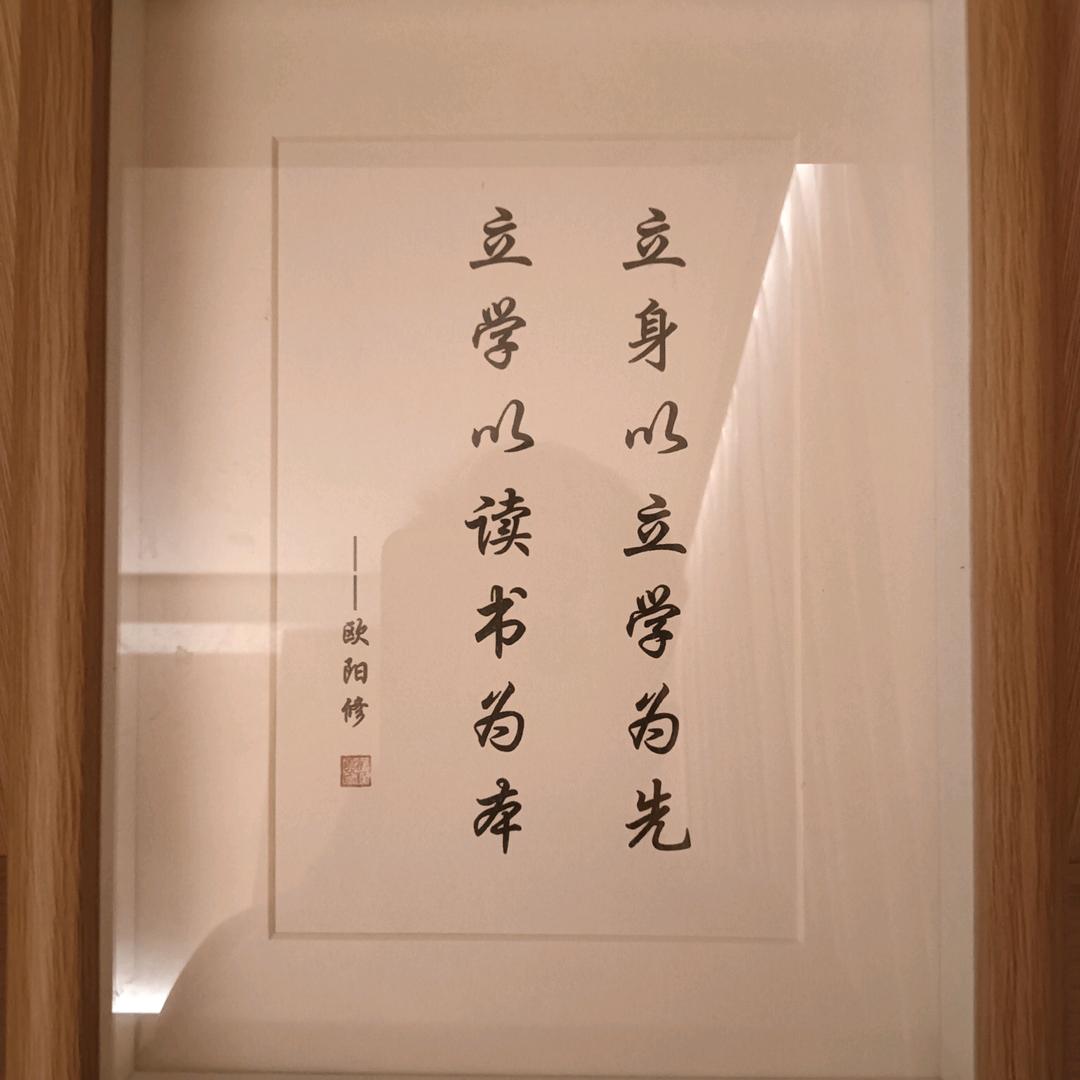 立身以立学为先
立学以读书为本
——欧阳修